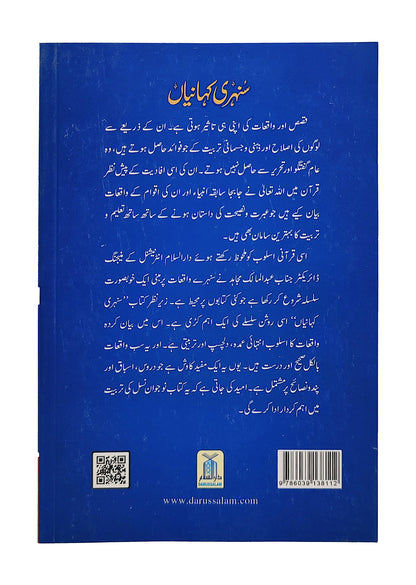 سنہری کہانیاں
قصص اور واقعات کی اپنی ہی تاثیر ہوتی ہے۔ ان کے ذریعے سے
لوگوں کی اصلاح اور ذہنی و جسمانی تربیت کے جو فوائد حاصل ہوتے ہیں، وہ
عام گفتگو اور تحریر سے حاصل نہیں ہوتے۔ ان کی اسی افادیت کے پیش نظر
قرآن میں اللہ تعالیٰ نے جابجا سابقہ انبیاء اور ان کی اقوام کے واقعات
بیان کیے ہیں جو عبرت و نصیحت کی داستان ہونے کے ساتھ ساتھ تعلیم و
تربیت کا بہترین سامان بھی ہیں۔
اسی قرآنی اسلوب کو ملحوظ رکھتے ہوئے دارالسلام انٹرنیشنل کے مینیجنگ
ڈائریکٹر جناب عبدالمالک مجاہد نے سنہرے واقعات پر مبنی ایک خوبصورت
سلسلہ شروع کر رکھا ہے جو کئی کتابوں پر محیط ہے۔ زیر نظر کتاب "سنہری
کہانیاں" اسی روشن سلسلے کی ایک اہم کڑی ہے۔ اس میں بیان کردہ
واقعات کا اسلوب انتہائی عمدہ، دلچسپ اور تربیتی ہے۔ اور یہ سب واقعات
بالکل صحیح اور درست ہیں۔ یوں یہ ایک مفید کاوش ہے جو دروس، اسباق اور
پند و نصائح پر مشتمل ہے۔ امید کی جاتی ہے کہ یہ کتاب نوجوان نسل کی تربیت
میں اہم کردار ادا کرے گی۔
دارالسلام
DARUSSALAM
www.darussalam.com
9 786039 138112